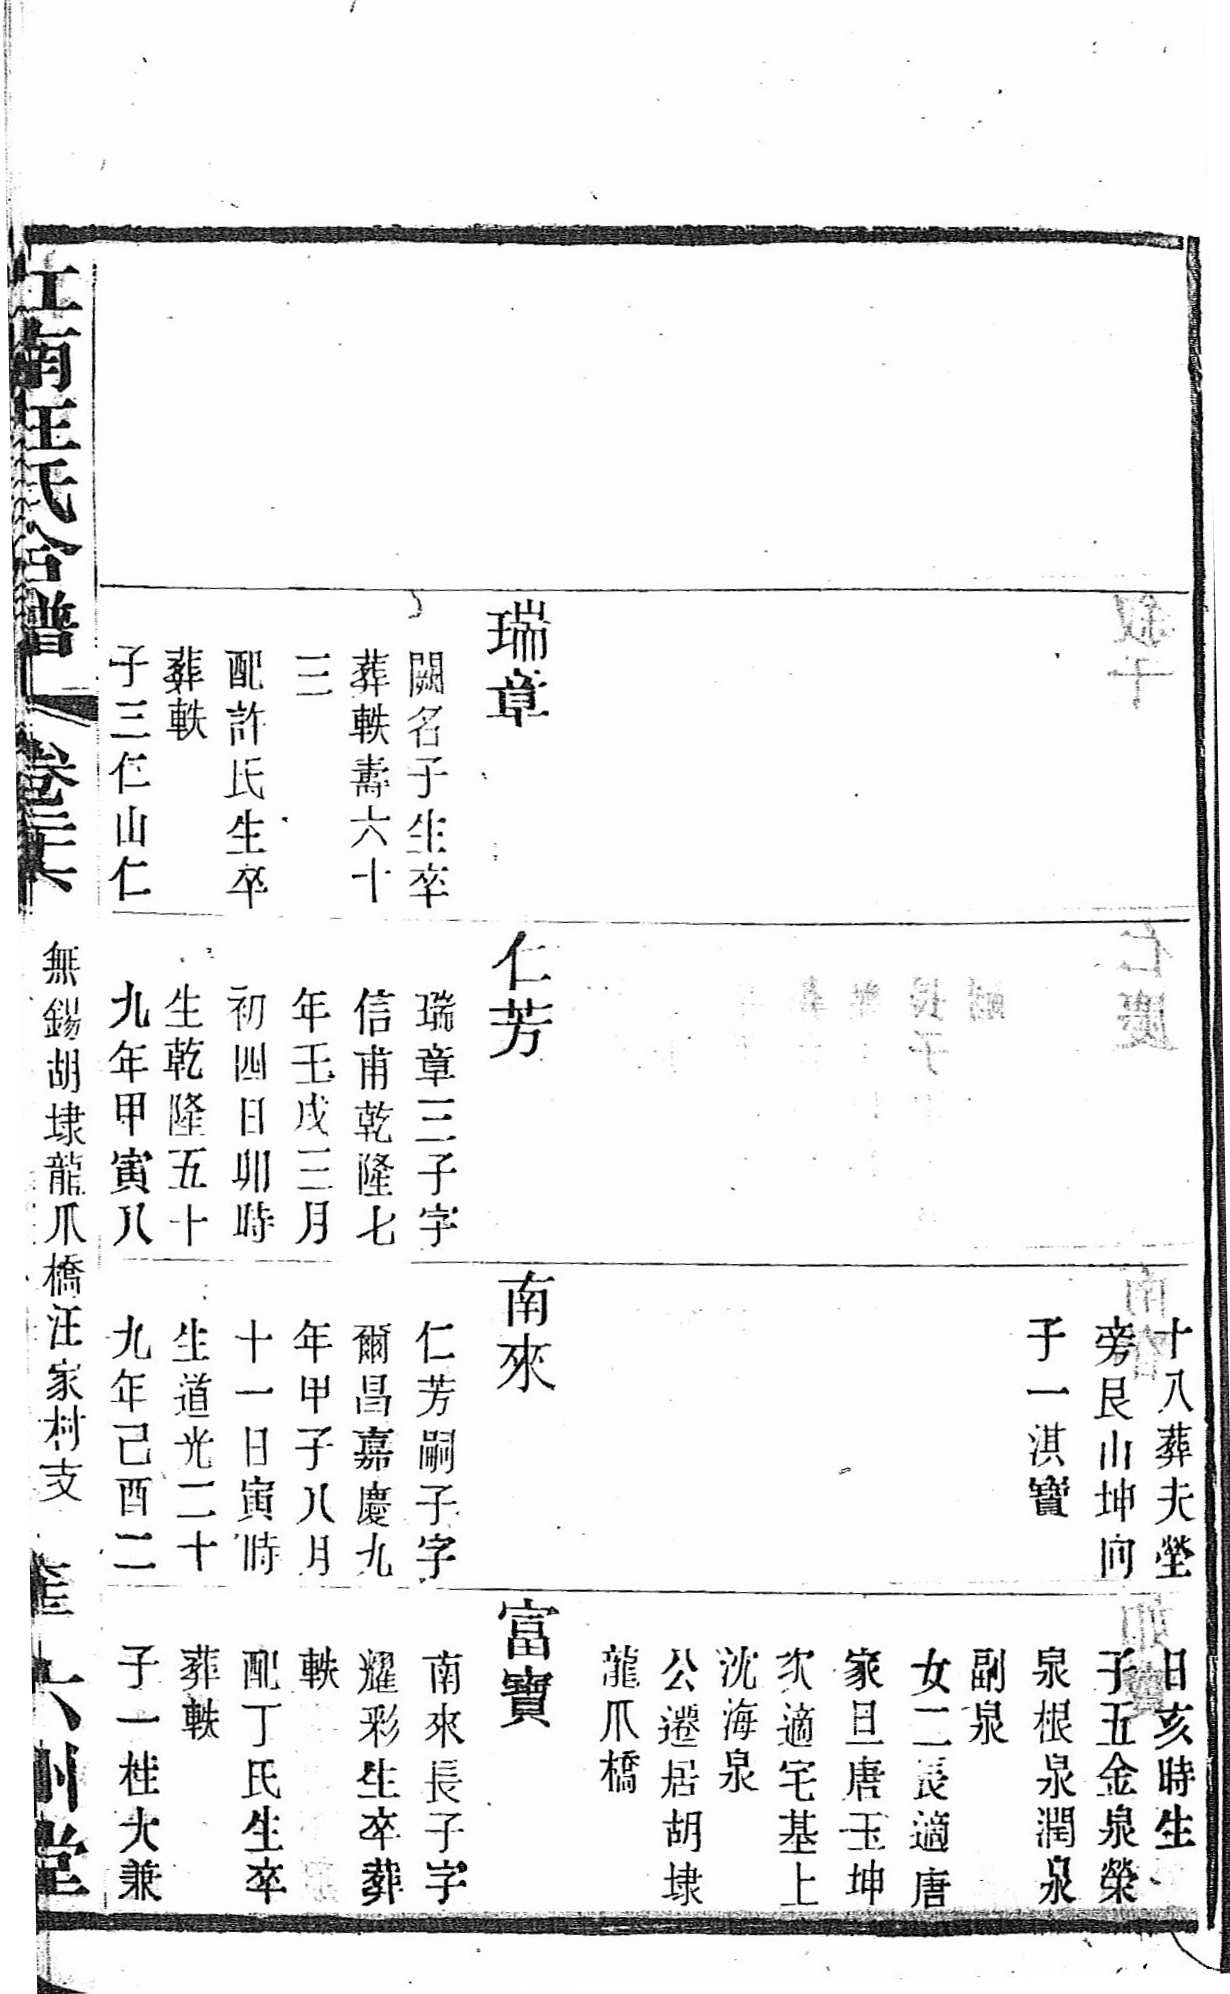 瑞章
闕名子生卒
葬軼壽六十
三
配許氏生卒
葬軼
子三仁山仁
仁芳
瑞章三子字
信甫乾隆七
年壬戌三月
初四日卯時
生乾隆五十
九年甲寅八
十八葬夫塋
旁艮山坤向
子一淇寶
南來
仁芳嗣子字
爾昌嘉慶九
年甲子八月
十一日寅時
生道光二十
九年己酉二
日亥時生
子五金泉榮
泉根泉潤泉
副泉
女二長適唐
家旦唐玉坤
次適宅基上
沈海泉
公遷居胡埭
龍爪橋
富寶
南來長子字
耀彩生卒葬
軼
配丁氏生卒
葬軼
子一桂大兼
江南汪氏合譜
卷三六
無錫胡埭龍爪橋汪家村支
六州堂